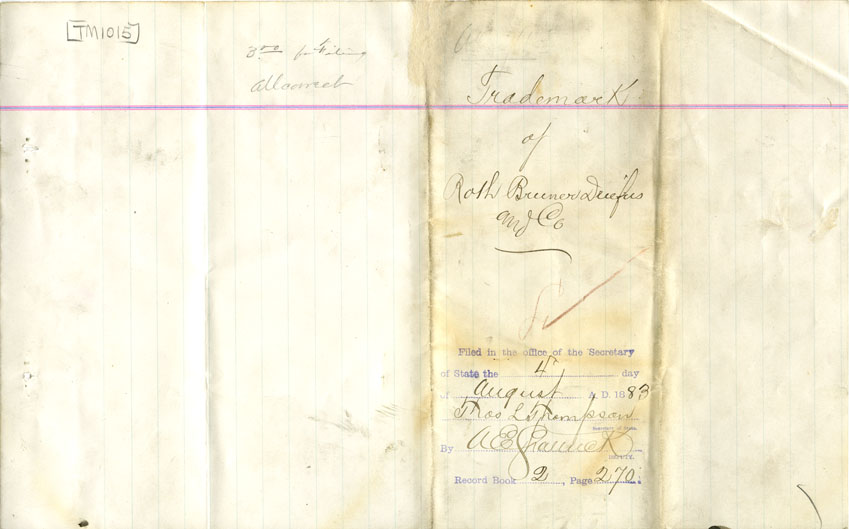 [TM1015]
3.00 for Filing
Trademark
of
Roth Bruner Dreifus
and Co
Filed in the office of the Secretary
of State the 4 day
of August A. D. 1883
Thos L. Thompson
Secretary of State.
By A E
DEPUTY.
Record Book 2, Page 270.